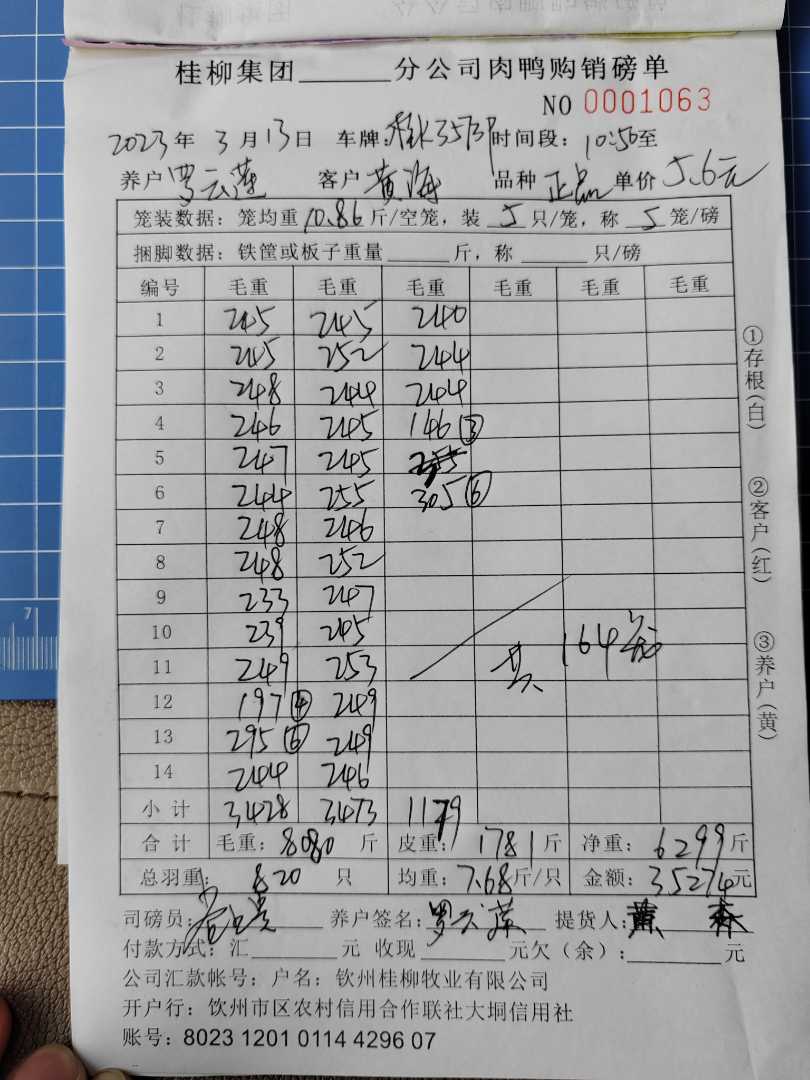 桂柳集团______分公司肉鸭购销磅单
NO 0001063
2023年 3月13日 车牌: 时间段: 10:50至
养户 罗云莲 客户 黄海 品种 正品 单价 5.6元
笼装数据: 笼均重 10.86 斤/空笼, 装 5 只/笼, 称 5 笼/磅
捆脚数据: 铁筐或板子重量______斤, 称______只/磅
编号 毛重 毛重 毛重 毛重 毛重 毛重
1 245 245 240
2 245 252 244
3 248 244 244
4 246 245 146③
5 247 245
6 244 255 305⑥
7 248 246
8 248 252
9 233 247
10 239 245
11 249 253
共 164笼
12 197④ 249
13 295⑥ 249
14 244 246
小计 3428 3473 1179
合计 毛重: 8080 斤 皮重: 1781 斤 净重: 6299 斤
总羽重: 820 只 均重: 7.68 斤/只 金额: 35274 元
司磅员: 养户签名: 罗云莲 提货人:
付款方式: 汇______元 收现______元欠(余):______元
公司汇款帐号: 户名: 钦州桂柳牧业有限公司
开户行: 钦州市区农村信用合作联社大垌信用社
账号: 8023 1201 0114 4296 07
①存根(白)
②客户(红)
③养户(黄)
7